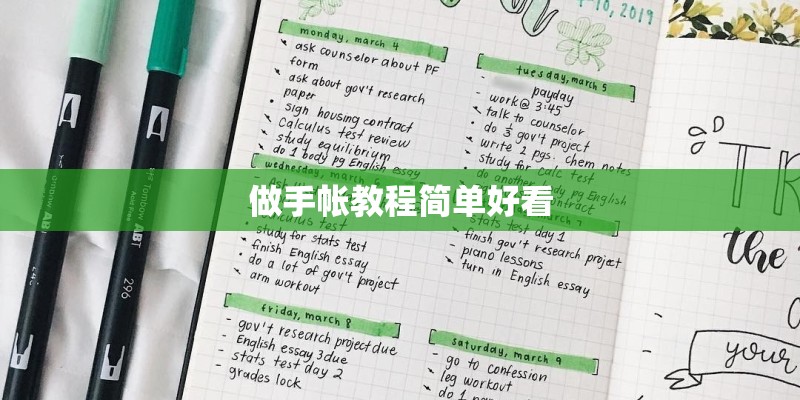 4-10, 2019
monday, march 4
ask counselor about PF
form
ask about gov't research
paper
sign housing contract
Calculus test review
study equilibrium
do 1 body pg English essay
tuesday, march 5
payday
work@ 3:45
talk to counselor
do 1/3 gov't project
write 2 pgs. chem notes
study for calc test
do another body pg English
wednesday, march 6
做手帐教程简单好看
calculus test
study for stats test
finish English essay
do a lot of gov't project
arm workout
stats test day 1
finish gov't research project
piano lessons
turn in English essay
friday, march 8
gov't research project due
English essay 3 due
stats test day 2
grades lock
saturday, march 9
go to confession
leg workout
do 1
TR
the
your
Tombow ABT
296